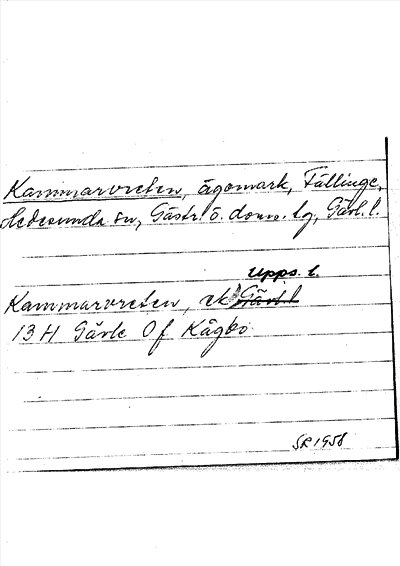 Kammarvreten, ägomark, Fällinge,
Hedesunda sn, Gästr. ö. doms. tg, Gävl. l.
Upps. l.
Kammarvreten, ek Gävl. l
13 H Gävle 0 f Kågbo
SR 1958